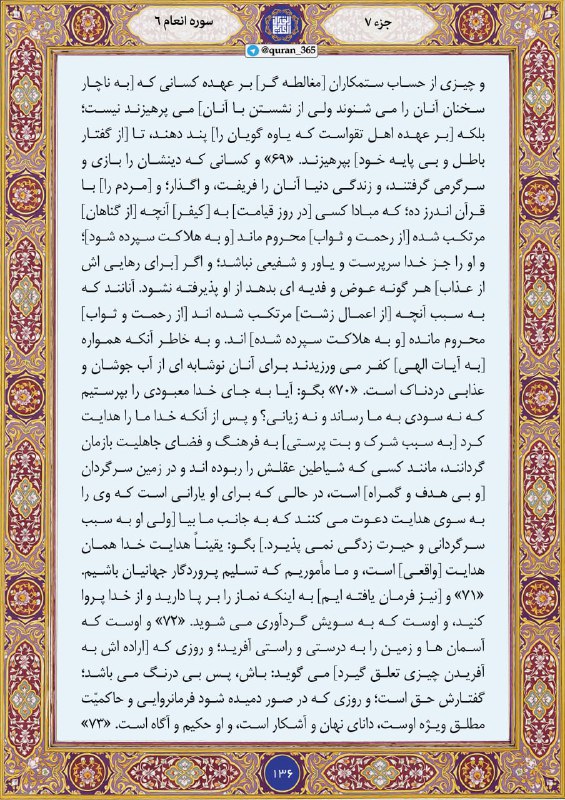 جزء ۷
سوره انعام ۶
@quran_365
و چیزی از حساب ستمکاران [مغالطه گر] بر عهده کسانی که [به ناچار
سخنان آنان را می شنوند ولی از نشستن با آنان] می پرهیزند نیست؛
بلکه [بر عهده اهل تقواست که یاوه گویان را] پند دهند، تا [از گفتار
باطل و بی پایه خود] بپرهیزند. «۶۹» و کسانی که دینشان را بازی و
سرگرمی گرفتند، و زندگی دنیا آنان را فریفت، و اگذار؛ و [مردم را] با
قرآن اندرز ده؛ که مبادا کسی [در روز قیامت] به [کیفر] آنچه [از گناهان]
مرتکب شده [از رحمت و ثواب] محروم ماند [و به هلاکت سپرده شود]؛
و او را جز خدا سرپرست و یاور و شفیعی نباشد؛ و اگر [برای رهایی اش
از عذاب] هر گونه عوض و فدیه ای بدهد از او پذیرفته نشود. آنانند که
به سبب آنچه [از اعمال زشت] مرتکب شده اند [از رحمت و ثواب]
محروم مانده [و به هلاکت سپرده شده] اند. و به خاطر آنکه همواره
[به آیات الهی] کفر می ورزیدند برای آنان نوشابه ای از آب جوشان و
عذابی دردناک است. «۷۰» بگو: آیا به جای خدا معبودی را بپرستیم
که نه سودی به ما رساند و نه زیانی؟ و پس از آنکه خدا ما را هدایت
کرد [به سبب شرک و بت پرستی] به فرهنگ و فضای جاهلیت بازمان
گردانند، مانند کسی که شیاطین عقلش را ربوده اند و در زمین سرگردان
[و بی هدف و گمراه] است، در حالی که برای او یارانی است که وی را
به سوی هدایت دعوت می کنند که به جانب ما بیا [ولی او به سبب
سرگردانی و حیرت زدگی نمی پذیرد.] بگو: یقیناً هدایت خدا همان
هدایت [واقعی] است، و ما مأموریم که تسلیم پروردگار جهانیان باشیم.
«۷۱» و [نیز فرمان یافته ایم] به اینکه نماز را بر پا دارید و از خدا پروا
کنید، و اوست که به سویش گردآوری می شوید. «۷۲» و اوست که
آسمان ها و زمین را به درستی و راستی آفرید؛ و روزی که [اراده اش به
آفریدن چیزی تعلق گیرد] می گوید: باش، پس بی درنگ می باشد؛
گفتارش حق است؛ و روزی که در صور دمیده شود فرمانروایی و حاکمیّت
مطلق ویژه اوست، دانای نهان و آشکار است، و او حکیم و آگاه است. «۷۳»
۱۳۶